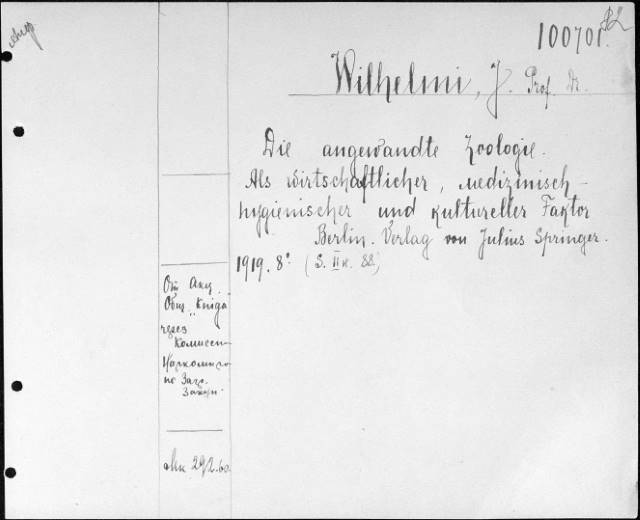 100701.
Wilhelmi, J. Prof. Dr.
Die angewandte Zoologie.
Als wirtschaftlicher, medizinisch-
hygienischer und kultureller Faktor
Berlin. Verlag von Julius Springer.
1919. 8° (S. II и. 88)
От Акц.
Общ. "Kniga
через
Комисси
Наркомпро
по Загр.
Закупк.